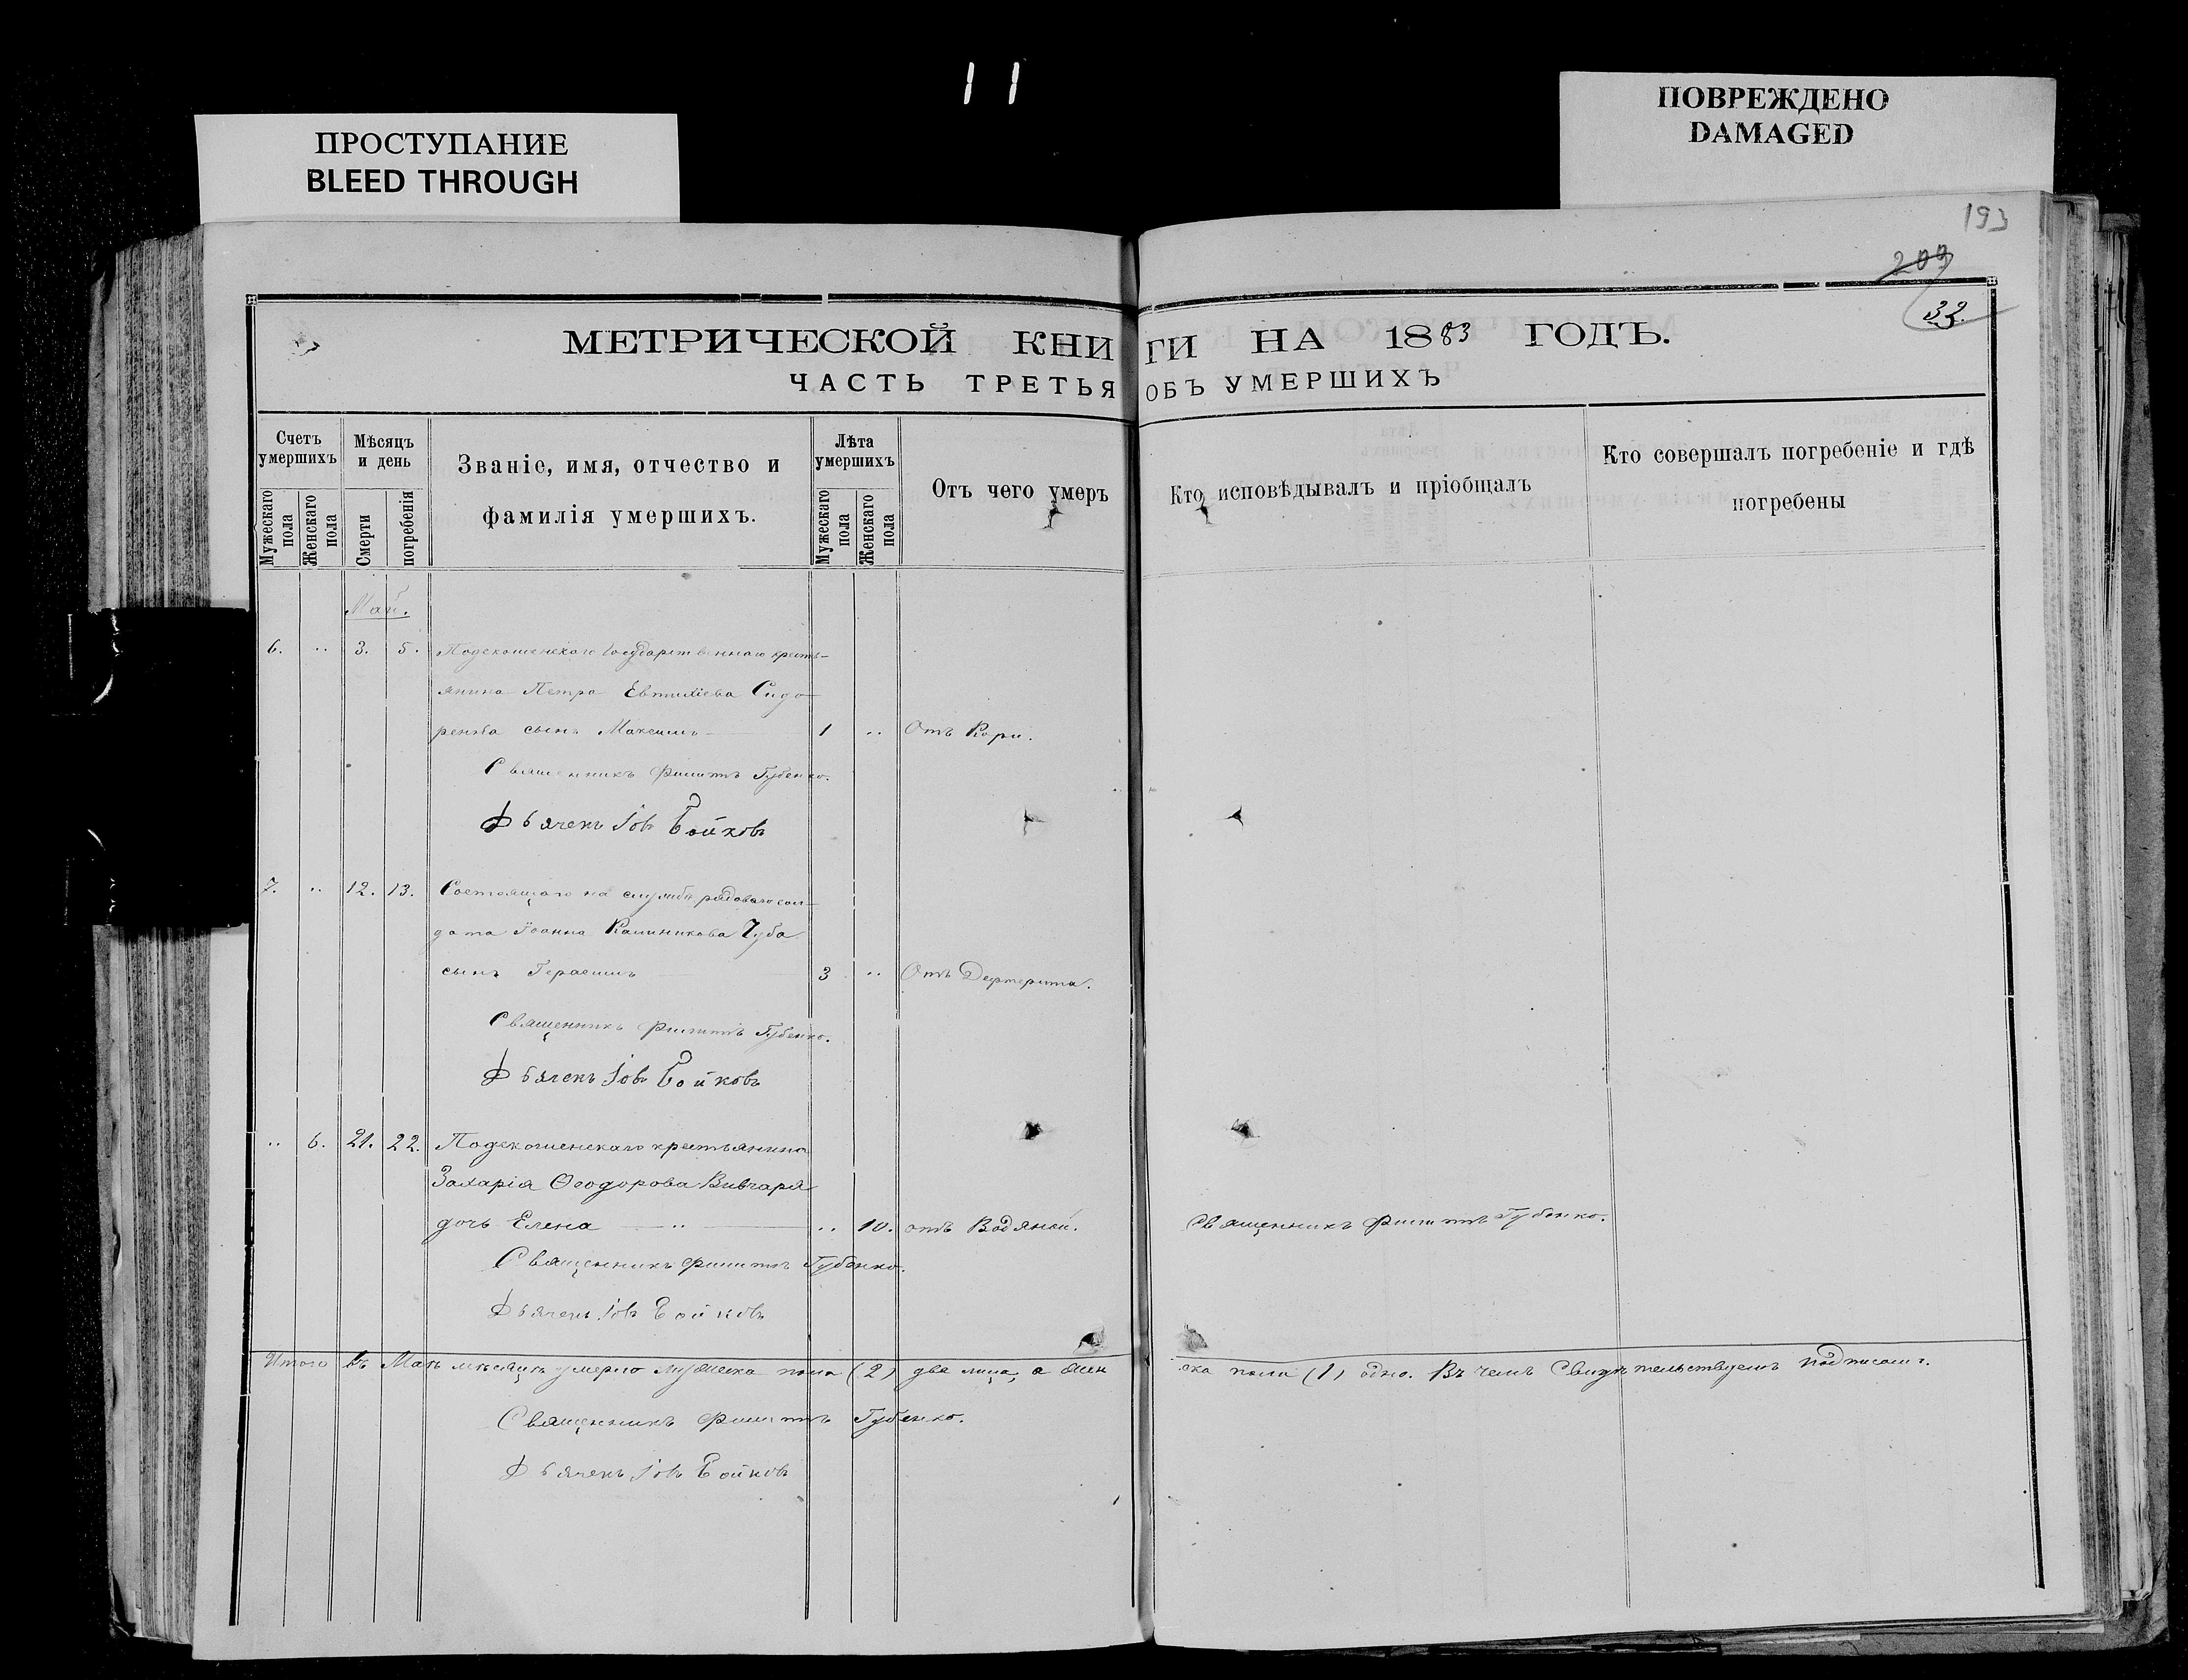 11
ПРОСТУПАНИЕ
BLEED THROUGH
ПОВРЕЖДЕНО
DAMAGED
193
209
33.
МЕТРИЧЕСКОЙ КНИГИ НА 1883 ГОДЪ.
ЧАСТЬ ТРЕТЬЯ ОБЪ УМЕРШИХЪ
Счетъ умершихъ
Мѣсяцъ и день
Званіе, имя, отчество и фамилія умершихъ.
Лѣта умершихъ
Отъ чего умеръ
Кто исповѣдывалъ и пріобщалъ
Кто совершалъ погребеніе и гдѣ погребены
Мужескаго пола
Женскаго пола
Смерти
погребенія
Мужескаго пола
Женскаго пола
Май.
6. .. 3. 5. Государственнаго кресть-
янина Петра Евтихіева Сидо
ренка сынъ Максимъ 1 .. Отъ Кори.
Священникъ Филиппъ Губенко.
Дьячекъ Іовъ Бойковъ
7. .. 12. 13. Состоящаго на службѣ рядоваго сол-
дата Іоанна Калиникова Чуба
сынъ Герасимъ 3 .. Отъ Дефтерита.
Священникъ Филиппъ Губенко.
Дьячекъ Іовъ Бойковъ
.. 6. 21. 22. крестьянина
Захарія Ѳеодорова Вивчаря
дочь Елена .. .. 10. отъ Водянки. Священникъ Филиппъ Губенко.
Священникъ Филиппъ Губенко.
Дьячекъ Іовъ Бойковъ
Итого въ Маѣ мѣсяцѣ умерло мужеска пола (2) два лица, а женска пола (1) одно. Въ чемъ Свидѣтельствуемъ подписомъ.
Священникъ Филиппъ Губенко.
Дьячекъ Іовъ Бойковъ